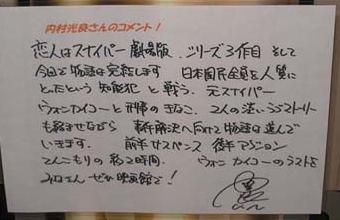 内村光良さんのコメント！
恋人はスナイパー 劇場版．シリーズ3作目 そして
今回で物語は完結します 日本国民全員を人質に
とったという 知能犯 と 戦う、元スナイパー
ウォンカイコーと 刑事のきなこ、2人の淡いラブストーリー
も絡ませながら 事件解決へ向けて物語は進んで
いきます。 前半サスペンス 後半アクション
てんこもりの約2時間、 ウォン カイコーのラストを
みなさん ぜひ映画館で！